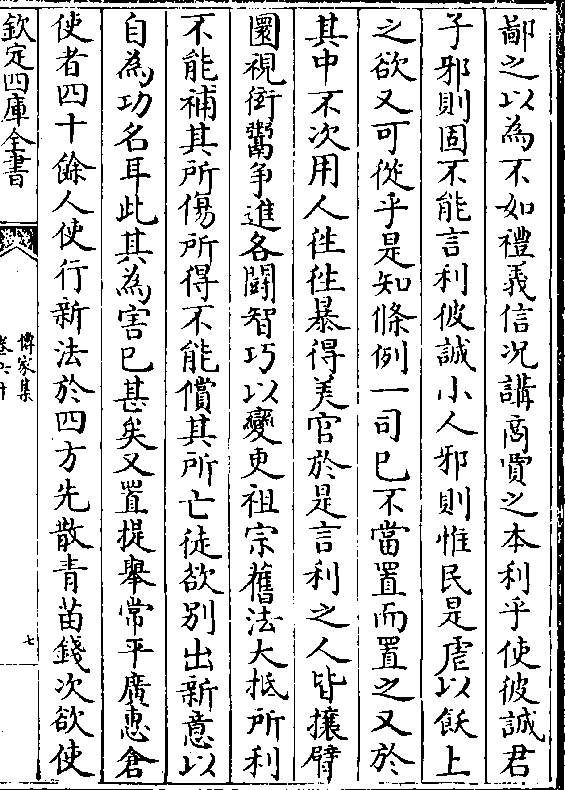 鄙之以為不如禮義信况講商賈之本利乎使彼誠君
子邪則固不能言利彼誠小人邪則惟民是虐以飫上
之欲又可從乎是知條例一司已不當置而置之又於
其中不次用人徃徃暴得美官於是言利之人皆攘臂
圜視衒鬻爭進各鬬智巧以變更祖宗舊法大抵所利
不能補其所傷所得不能償其所亡徒欲别出新意以
自為功名耳此其為害已甚矣又置提舉常平廣惠倉
使者四十餘人使行新法於四方先散青苗錢次欲使
欽定四庫全書
傳家集
卷六十
七